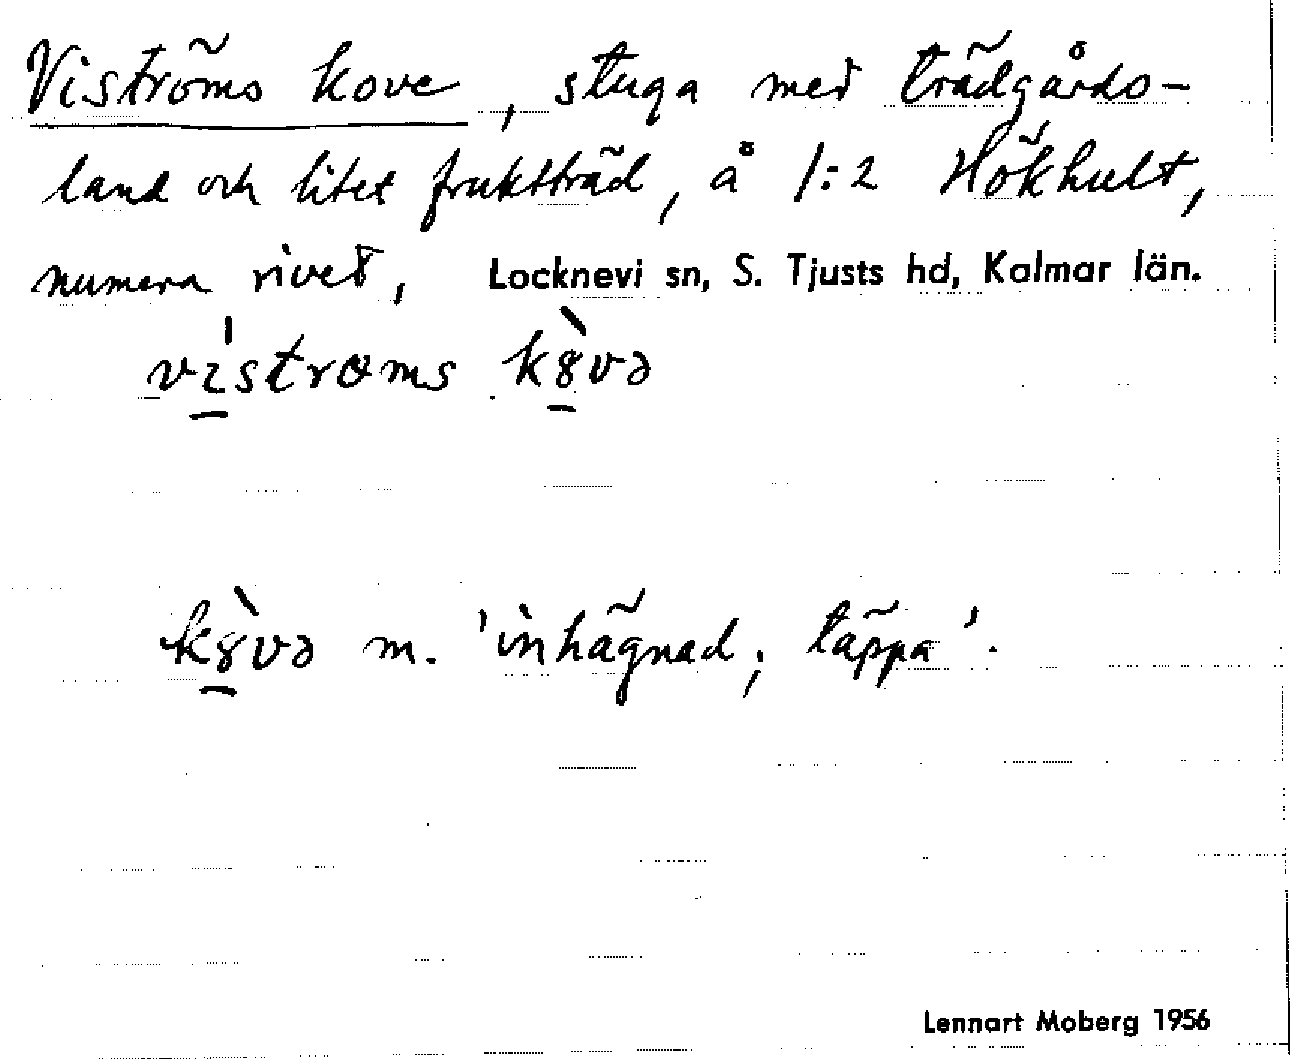 Viströms kove, stuga med trädgårds-
land och litet fruktträd, å 1:2 Hökhult,
numera rivet, Locknevi sn, S. Tjusts hd, Kalmar län.
vı̍strɷms kȣ̀və
kȣ̀və m. 'inhägnad; täppa'.
Lennart Moberg 1956